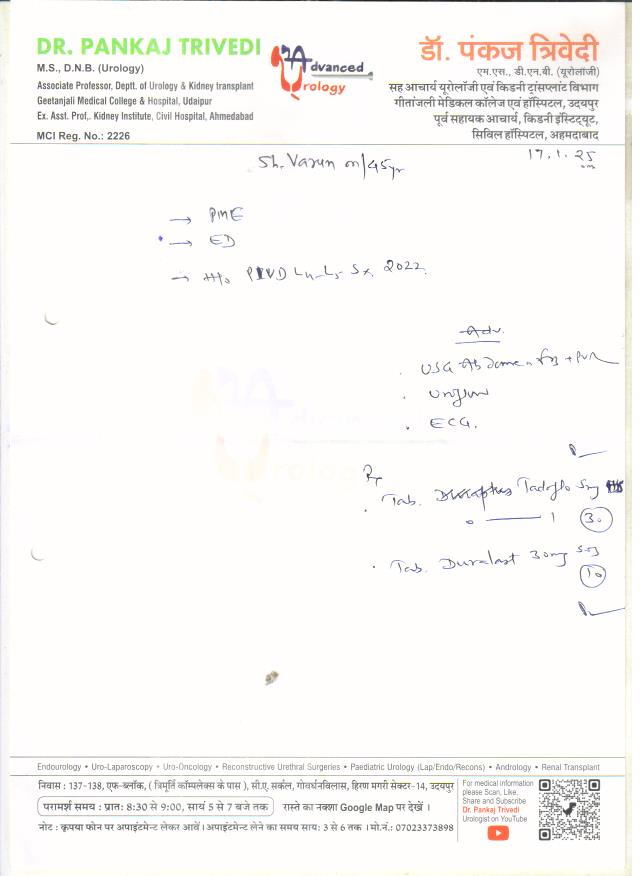 DR. PANKAJ TRIVEDI
M.S., D.N.B. (Urology)
Associate Professor, Deptt. of Urology & Kidney transplant
Geetanjali Medical College & Hospital, Udaipur
Ex. Asst. Prof,. Kidney Institute, Civil Hospital, Ahmedabad
MCI Reg. No.: 2226
Advanced
Urology
डॉ. पंकज त्रिवेदी
एम.एस., डी.एन.बी. (यूरोलॉजी)
सह आचार्य यूरोलॉजी एवं किडनी ट्रांसप्लांट विभाग
गीतांजली मेडिकल कॉलेज एवं हॉस्पिटल, उदयपुर
पूर्व सहायक आचार्य, किडनी इंस्टिट्यूट,
सिविल हॉस्पिटल, अहमदाबाद
17.1.25
Sh. Varun m/45yr
→ PME
→ ED
→ H/o PIVD L4-L5 Sx. 2022.
Adv.
. USG Abdomen + PVR
. Uroflow
. ECG.
Rx
. Tab. Tadaflo 5mg
0 — 1 (30)
. Tab. Duralast 30mg SOS
(10)
Endourology • Uro-Laparoscopy • Uro-Oncology • Reconstructive Urethral Surgeries • Paediatric Urology (Lap/Endo/Recons) • Andrology • Renal Transplant
निवास : 137-138, एफ-ब्लॉक, ( त्रिमूर्ति कॉम्पलेक्स के पास ), सी.ए. सर्कल, गोवर्धनविलास, हिरण मगरी सेक्टर-14, उदयपुर
परामर्श समय : प्रातः 8:30 से 9:00, सायं 5 से 7 बजे तक रास्ते का नक्शा Google Map पर देखें ।
नोट : कृपया फोन पर अपाइंटमेन्ट लेकर आवें । अपाइंटमेन्ट लेने का समय सायः 3 से 6 तक । मो.नं.: 07023373898
For medical information
please Scan, Like,
Share and Subscribe
Dr. Pankaj Trivedi
Urologist on YouTube